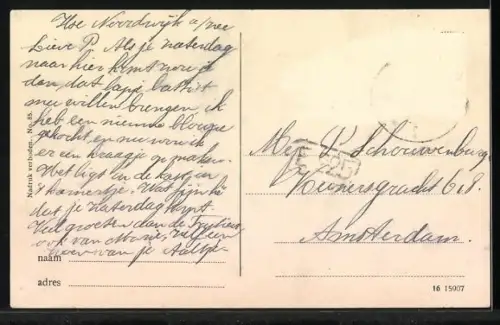 Hse Noordwijk a/zee
Lieve P. Als je zaterdag
naar hier komt wou je
dan dat lapje battist
mee willen brengen, ik
heb een nieuwe blouse
gekocht en nu wou ik
er een kraagje op maken.
Het ligt in de kast in
't kamertje. Wat fijn hè
dat je Zaterdag komt.
Veel groeten aan de
ook van Marie, veel een
van je Aaltje
naam
adres
Nadruk verboden. No. 85.
Mej. P. Schouwenburg
Reiniersgracht 618
Amsterdam.
16 15007